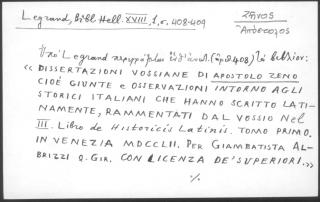 Legrand, Bibl. Hell. XVIII, 1, σ. 408-409
Ζῆνος
Ἀπόστολος
Ὑπὸ Legrand περιγράφεται (ἀρ. 408) τὸ βιβλίον:
« DISSERTAZIONI VOSSIANE DI APOSTOLO ZENO
CIOÈ GIUNTE e OSSERVAZIONI INTORNO AGLI
STORICI ITALIANI CHE HANNO SCRITTO LATI-
NAMENTE, RAMMENTATI DAL VOSSIO Nel
III. Libro de Historicis Latinis. TOMO PRIMO.
IN VENEZIA MDCCLII. PER GIAMBATISTA AL-
BRIZZI Q. GIR. CON LICENZA DE' SUPERIORI.»
./.